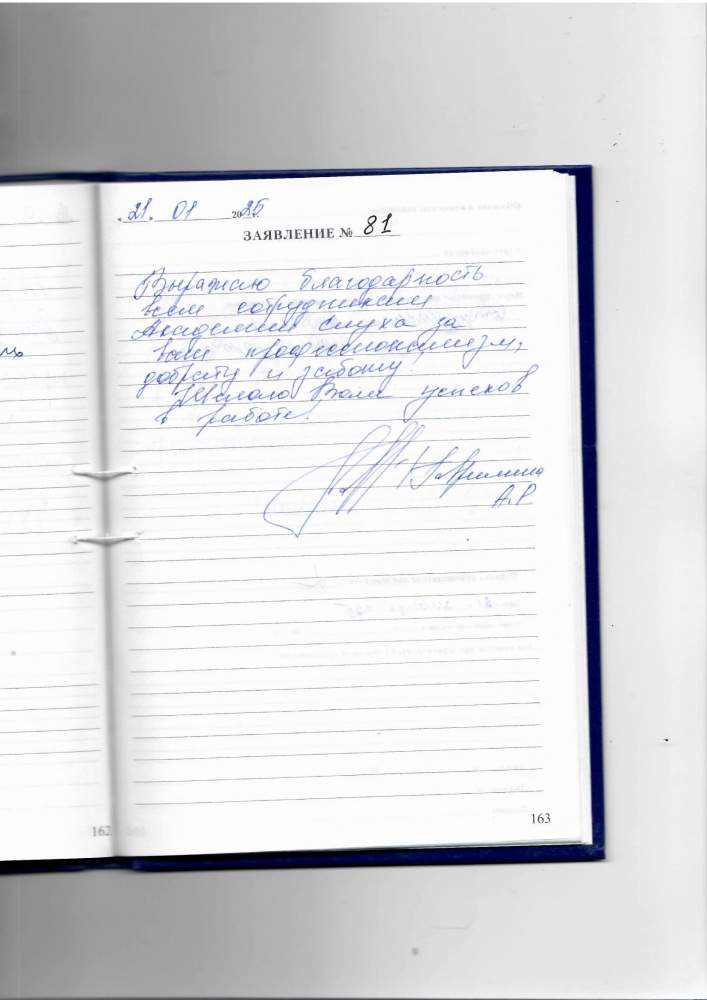 « 21 » 01 2025 г.
ЗАЯВЛЕНИЕ № 81
Выражаю благодарность
всем сотрудникам
Академии слуха за
ваш профессионализм,
доброту и заботу!
Желаю Вам успехов
в работе.
А.Р
162
163